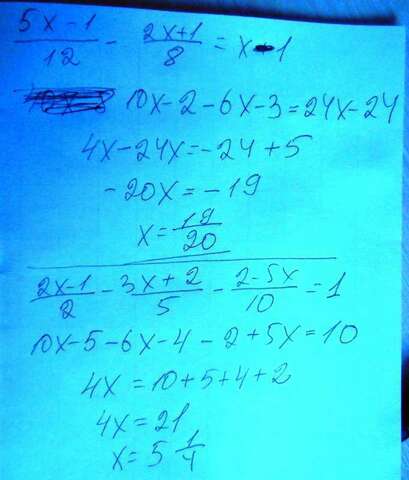 (5x-1)/12 - (2x+1)/8 = x-1
10x-2-6x-3=24x-24
4x-24x=-24+5
-20x=-19
x=19/20
(2x-1)/2 - (3x+2)/5 - (2-5x)/10 = 1
10x-5-6x-4-2+5x=10
4x=10+5+4+2
4x=21
x=5 1/4